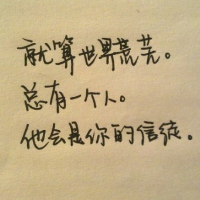 就算世界荒芜。
总有一个人。
他会是你的信徒。